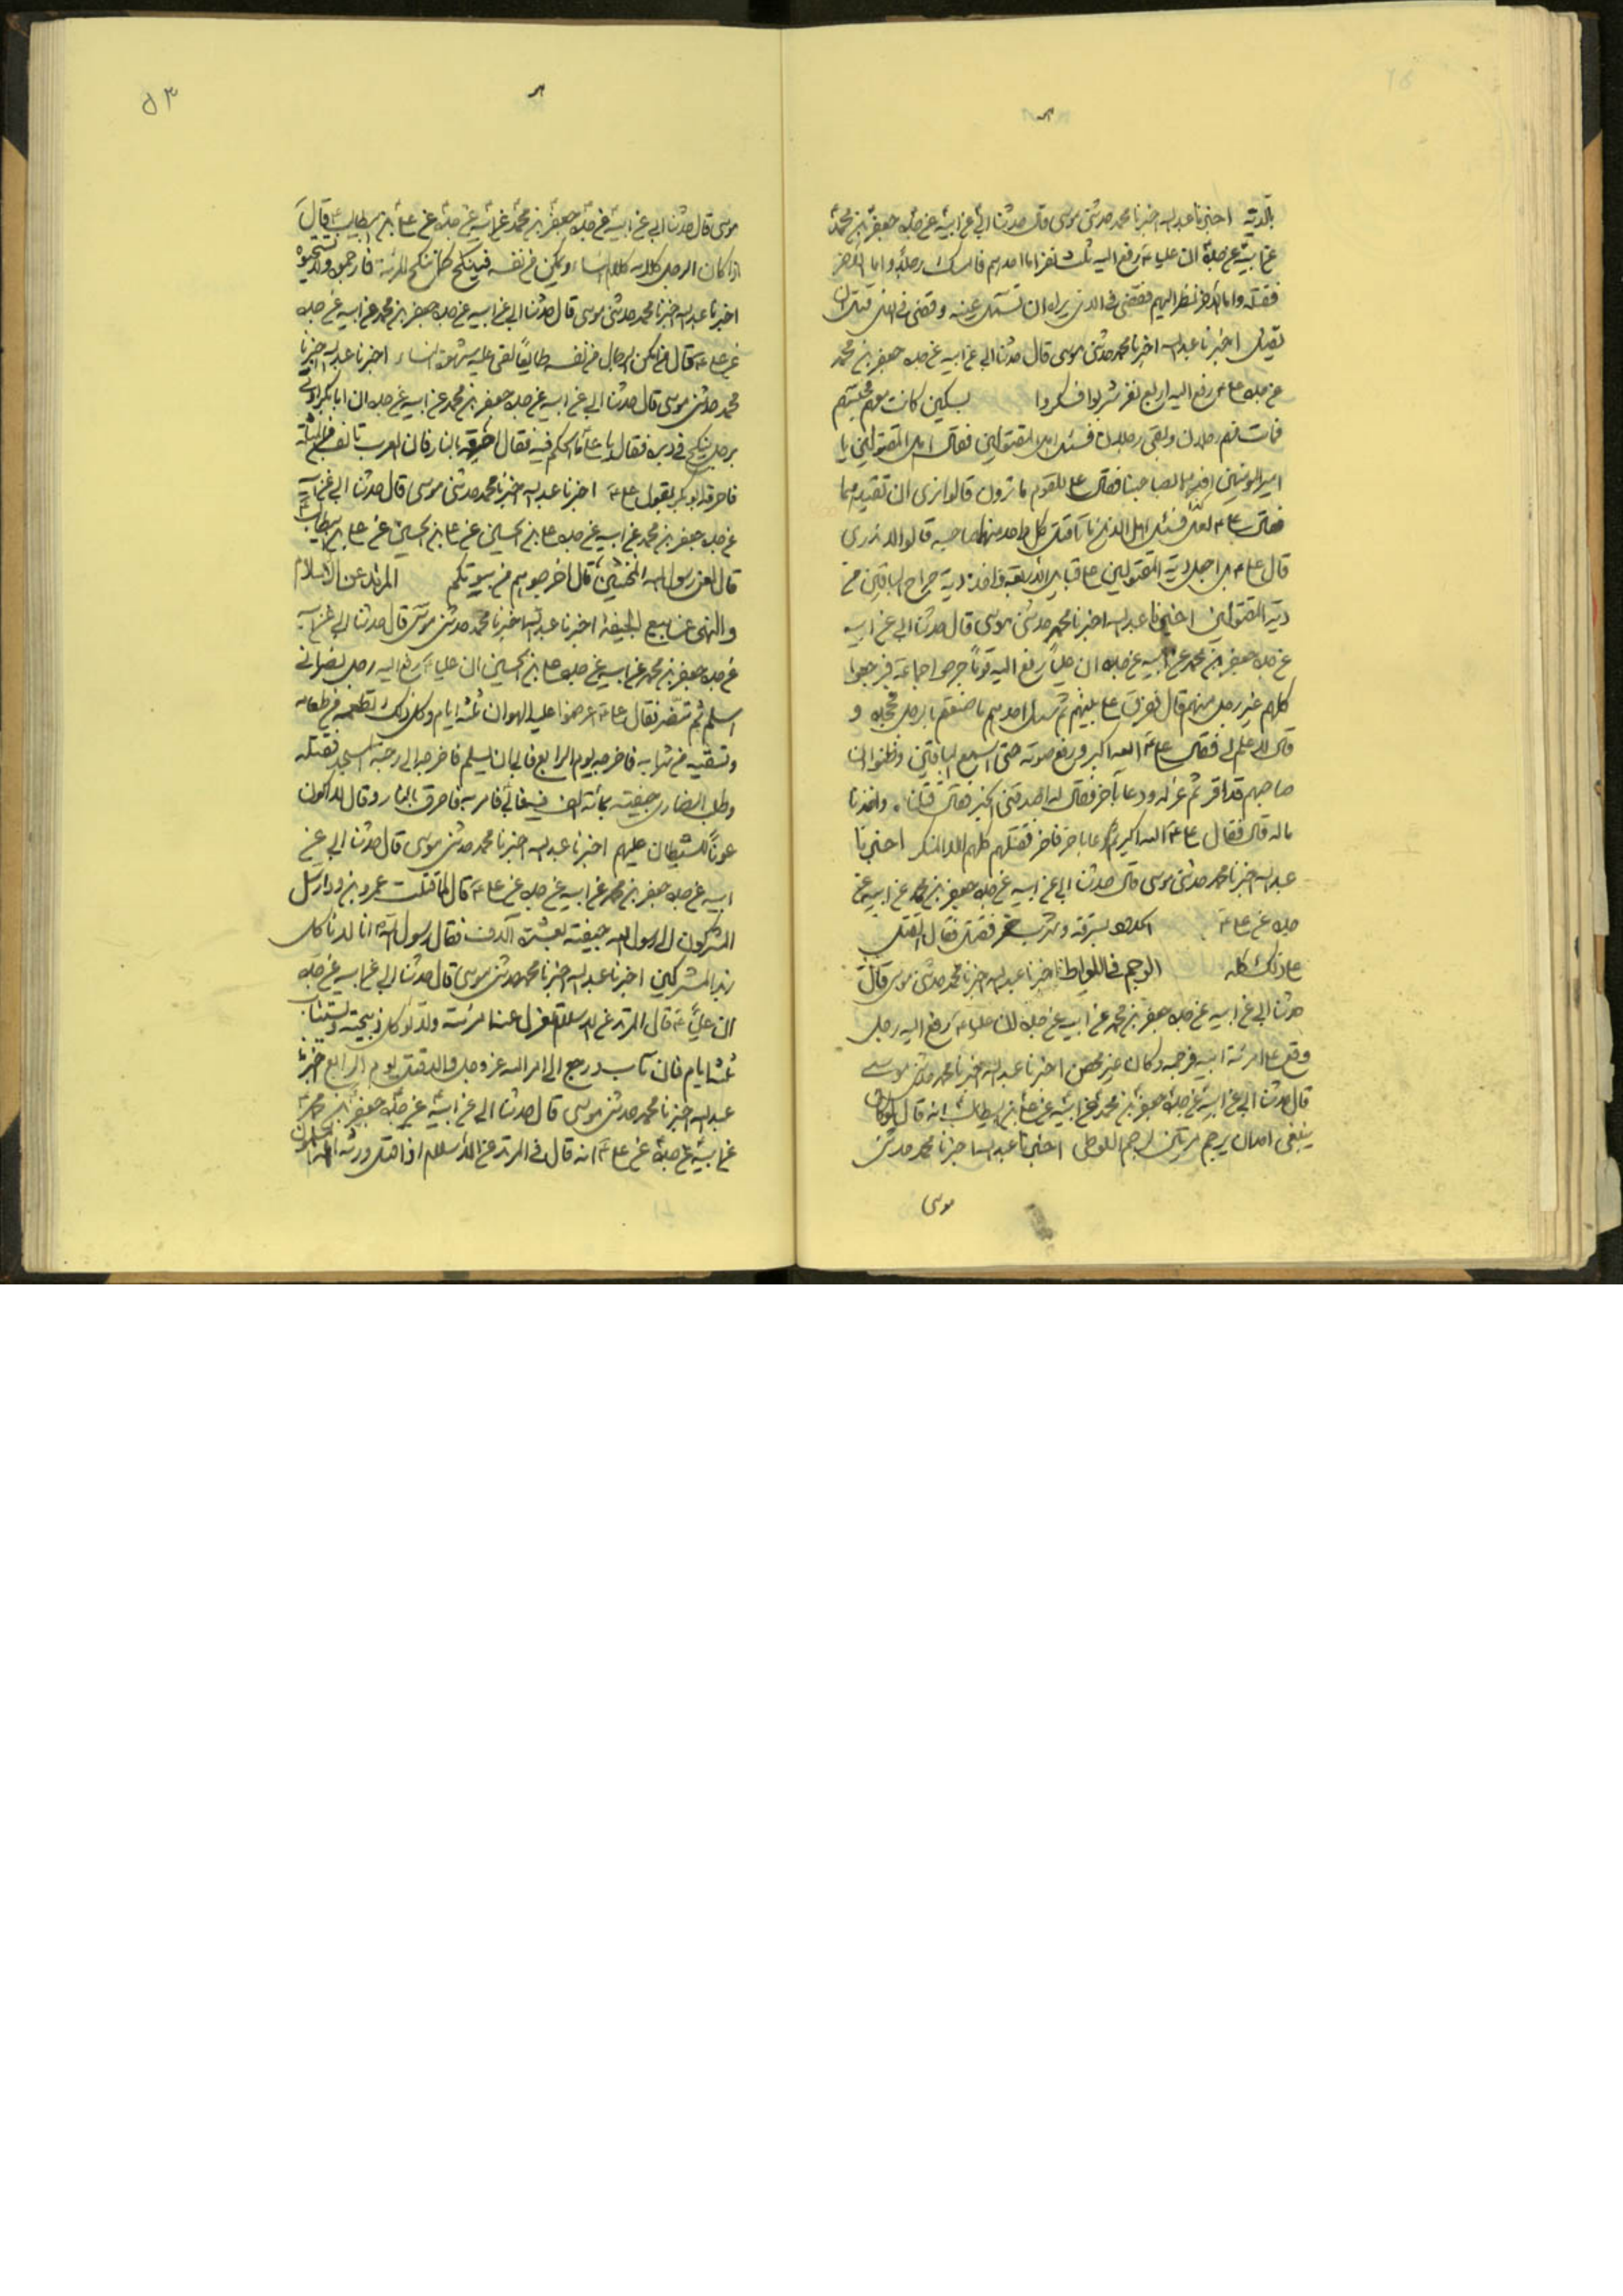 بالدية اخبرنا عبد الله اخبرنا محمد حدثنى موسى قال حدثنا ابي عن ابيه عن جده جعفر بن محمد
عن ابيه عن جده ان عليا ع رفع اليه ثلثة نفر اما احدهم فامسك رجلا واما الاخر
فقتله واما الاخر نظر اليهم فقضى فى الذى يراه ان تسمل عينه وقضى فى الذى قتل ان
يقتل اخبرنا عبد الله اخبرنا محمد حدثنى موسى قال حدثنا ابي عن ابيه عن جده جعفر بن محمد
عن جده على رفع اليه اربع نفر شربوا فسكروا بسكين كانت معهم
فمات منهم رجلان وبقى رجلان فسئل اهل المقتولين فقال اهل المقتولين يا
امير المؤمنين اقدهما لصاحبنا فقال على للقوم ما ترون قالوا نرى ان تقيدهما
فقال على ع لعل اللذين ماتا قتل كل واحد منهما صاحبه قالوا لا ندرى
قال على ع بل اجعل دية المقتولين على قبايل الاربعة واخذ دية جراح الباقين من
دية المقتولين اخبرنا عبد الله اخبرنا محمد حدثنى موسى قال حدثنا ابي عن ابيه
عن جده جعفر بن محمد عن ابيه عن جده ان عليا رفع اليه قوما خرجوا جماعة فرجعوا
كلهم غير رجل منهم قال ففرق على بينهم ثم سئل احدهم ما صنعتم بالرجل فجحد و
قال لا علم لى فقال على ع الله اكبر ورفع صوته حتى اسمع الباقين وظنوا ان
صاحبهم قد اقر ثم عزله ودعا بآخر فقال له اصدقنى الخبر فقال قتلناه واخذنا
ماله قال فقال على ع الله اكبر ثم دعا باخر فاخر فقتلهم كلهم الا المنكر اخبرنا
عبد الله اخبرنا محمد حدثنى موسى قال حدثنا ابي عن ابيه عن جده جعفر بن محمد عن ابيه عن
جده عن على ع بسرقة وشرب خمر فقتل فقال القتل
على ذلك كله الرجم فى اللواط اخبرنا عبد الله اخبرنا محمد حدثنى موسى قال
حدثنا ابي عن ابيه عن جده جعفر بن محمد عن ابيه عن جده ان عليا ع رفع اليه رجل
وقع على امرئة ابيه فرجمه وكان غير محصن اخبرنا عبد الله اخبرنا محمد حدثنى موسى
قال حدثنا ابي عن ابيه عن جده جعفر بن محمد عن ابيه عن جده عن على بن ابيطالب انه قال لو كان
ينبغى احد ان يرجم مرتين لرجم اللوطى اخبرنا عبد الله اخبرنا محمد حدثنى
موسى
٥٣
موسى قال حدثنا ابي عن ابيه عن جده جعفر بن محمد عن ابيه عن جده عن على بن ابيطالب قال
اذا كان الرجل كلامه كلام النساء ويمكن من نفسه فينكح كما تنكح المرئة فارجموه ولا تستحيوه
اخبرنا عبد الله اخبرنا محمد حدثنى موسى قال حدثنا ابي عن ابيه عن جده جعفر بن محمد عن ابيه عن جده
عن على ع قال من امكن الرجال من نفسه طايعا القى عليه شهوة النساء اخبرنا عبد الله اخبرنا
محمد حدثنى موسى قال حدثنا ابي عن ابيه عن جده جعفر بن محمد عن ابيه عن جده ان ابا بكر اوتى
برجل ينكح فى دبره فقال يا على ما الحكم فيه فقال احرقه بالنار فان العرب تانف من المثلة
فاحرقه ابو بكر بقول على ع اخبرنا عبد الله اخبرنا محمد حدثنى موسى قال حدثنا ابي عن ابيه
عن جده جعفر بن محمد عن ابيه عن جده على بن الحسين عن على بن ابيطالب
قال لعن رسول الله المخنثين قال اخرجوهم من بيوتكم المرتد عن الاسلام
والنهى عن بيع الجيفة اخبرنا عبد الله اخبرنا محمد حدثنى موسى قال حدثنا ابي عن ابيه
عن جده جعفر بن محمد عن ابيه عن جده على بن الحسين ان عليا ع رفع اليه رجل نصرانى
اسلم ثم تنصر فقال على ع اعرضوا عليه الهوان ثلثة ايام وكل ذلك تطعمه من طعامه
وتسقيه من شرابه فاخرجه يوم الرابع فابى ان يسلم فاخرجه الى رحبة المسجد فقتله
وطلب النصارى جيفته بمائة الف فيه فابى فامر به فاحرق بالنار وقال لا اكون
عونا للشيطان عليهم اخبرنا عبد الله اخبرنا محمد حدثنى موسى قال حدثنا ابي عن
ابيه عن جده جعفر بن محمد عن ابيه عن جده عن على ع قال لما قتلت عمرو بن ود ارسل
المشركون الى رسول الله جيفته بعشرة آلاف فقال رسول الله انا لا ناكل
المشركين اخبرنا عبد الله اخبرنا محمد حدثنى موسى قال حدثنا ابي عن ابيه عن جده
ان عليا ع قال المرتد عن الاسلام تعزل عنه امرئته ولا توكل ذبيحته ويستتاب
ثلثة ايام فان تاب ورجع الى امر الله عز وجل والا قتل يوم الرابع اخبرنا
عبد الله اخبرنا محمد حدثنى موسى قال حدثنا ابي عن ابيه عن جده جعفر بن محمد
عن ابيه عن جده عن على ع انه قال فى المرتد عن الاسلام اذا قتل ورثه